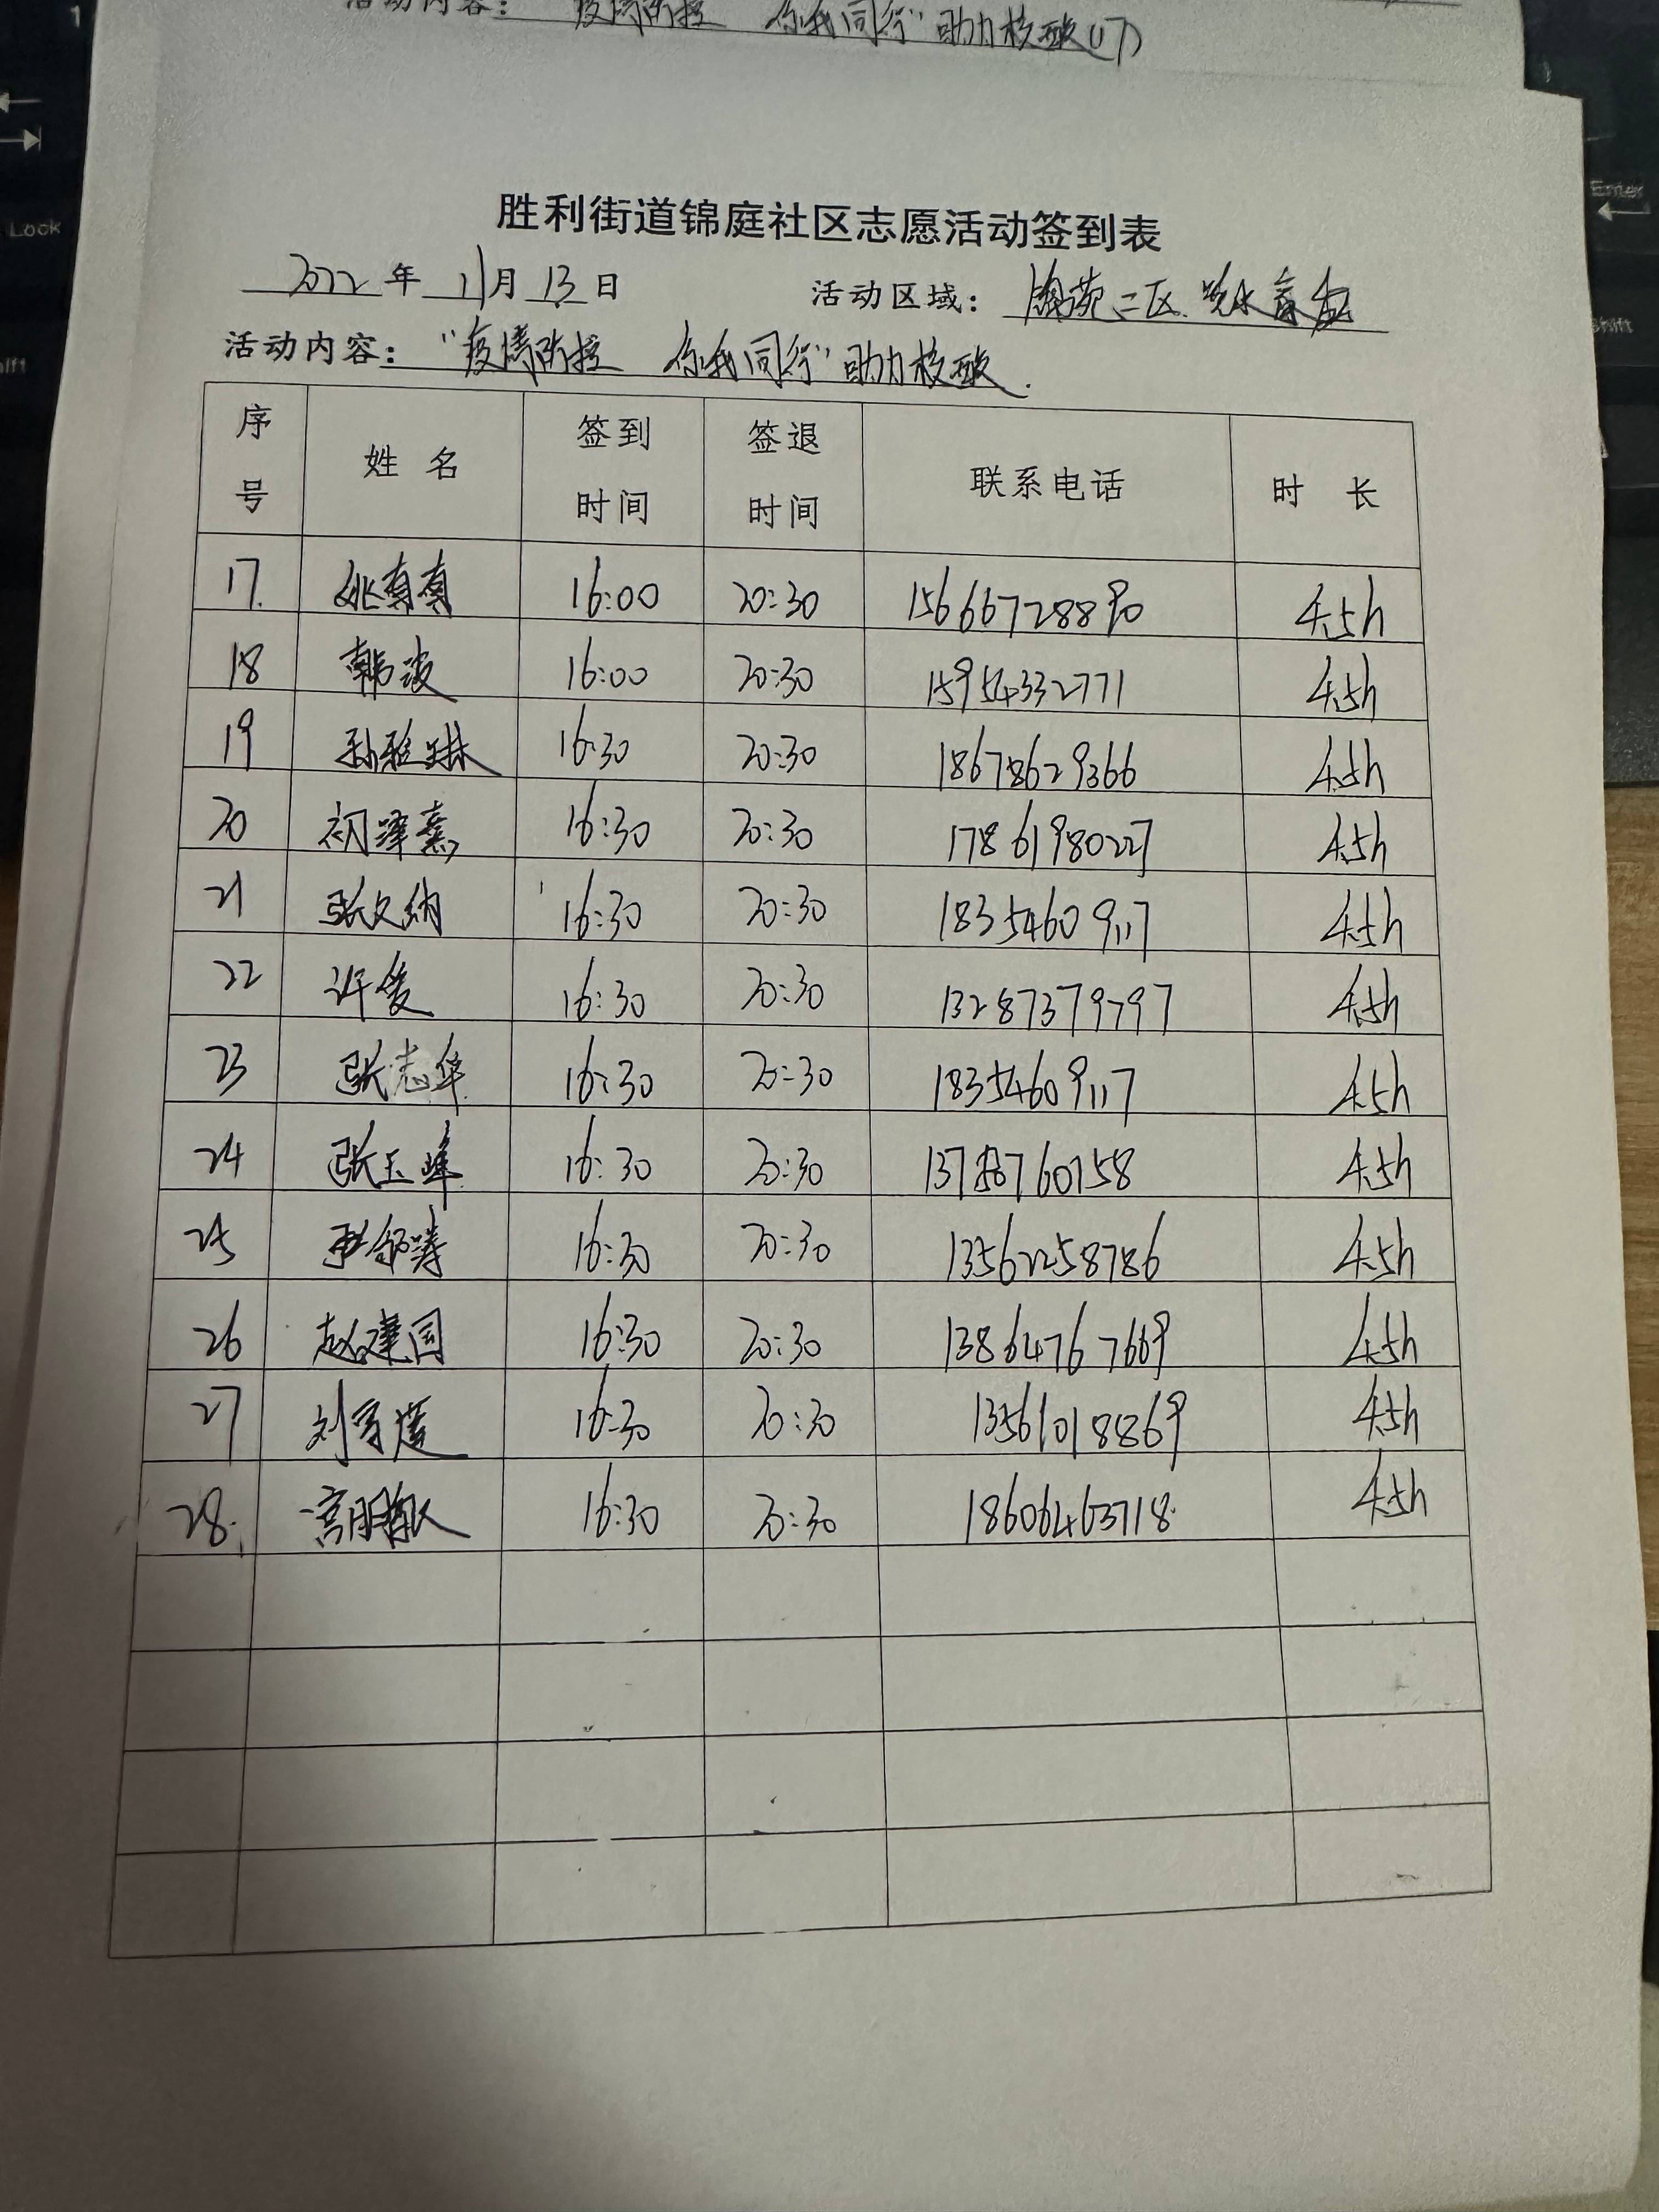 活动内容：“疫情防控 你我同行”助力核酸(17)
胜利街道锦庭社区志愿活动签到表
2022年 11月 13日 活动区域： 二区
活动内容：“疫情防控 你我同行”助力核酸.
序号 姓名 签到时间 签退时间 联系电话 时长
17. 姚真真 16:00 20:30 15666728890 4.5h
18 韩波 16:00 20:30 15954332771 4.5h
19 孙雅琳 16:30 20:30 18678629366 4.5h
20 初泽熹 16:30 20:30 17861980227 4.5h
21 张文纳 16:30 20:30 18354609117 4.5h
22 许爱 16:30 20:30 13287379797 4.5h
23 张志华 16:30 20:30 18354609117 4.5h
24 张玉峰 16:30 20:30 4.5h
25 16:30 20:30 13562258786 4.5h
26 赵建国 16:30 20:30 13864767669 4.5h
27 刘 16:30 20:30 13561018869 4.5h
28. 16:30 20:30 18606463718 4.5h
Lock
Enter
Shift